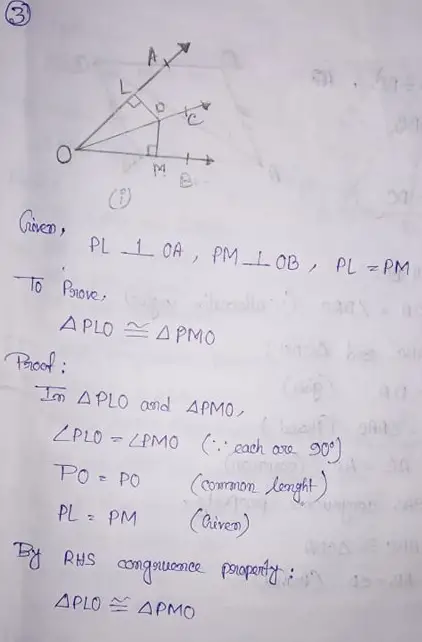 3
A
L
P
C
O
M
B
(i)
Given,
PL ⊥ OA, PM ⊥ OB, PL = PM
To Prove,
△PLO ≅ △PMO
Proof:
In △PLO and △PMO,
∠PLO = ∠PMO (∵ each are 90°)
PO = PO (common lenght)
PL = PM (Given)
By RHS congruence property:
△PLO ≅ △PMO